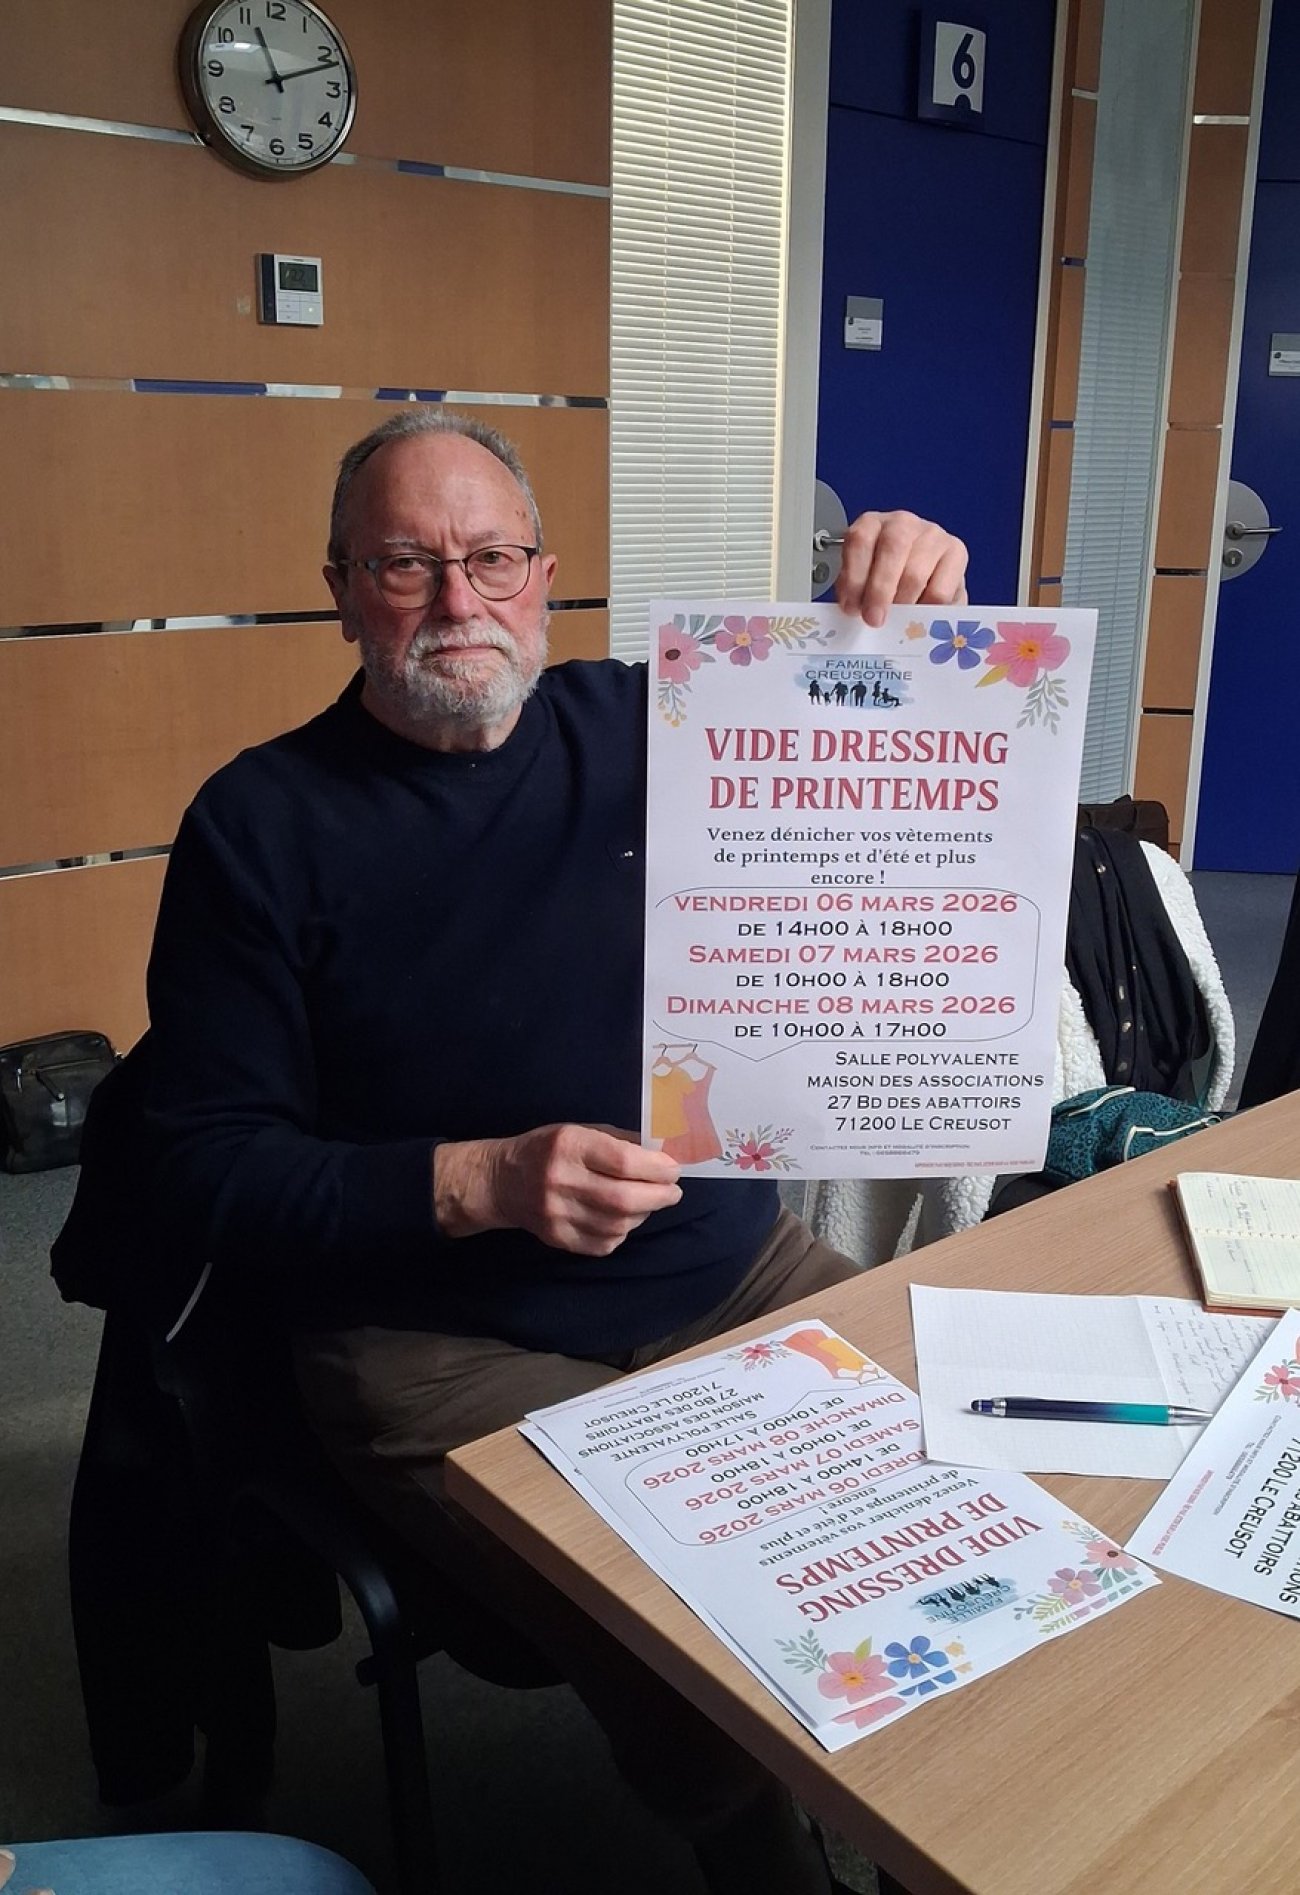 12
1
2
3
5
6
7
8
9
10
11
6
FAMILLE
CREUSOTINE
VIDE DRESSING
DE PRINTEMPS
Venez dénicher vos vêtements
de printemps et d'été et plus
encore !
VENDREDI 06 MARS 2026
DE 14H00 À 18H00
SAMEDI 07 MARS 2026
DE 10H00 À 18H00
DIMANCHE 08 MARS 2026
DE 10H00 À 17H00
SALLE POLYVALENTE
MAISON DES ASSOCIATIONS
27 BD DES ABATTOIRS
71200 LE CREUSOT
FAMILLE
CREUSOTINE
VIDE DRESSING
DE PRINTEMPS
Venez dénicher vos vêtements
de printemps et d'été et plus
encore !
VENDREDI 06 MARS 2026
DE 14H00 À 18H00
SAMEDI 07 MARS 2026
DE 10H00 À 18H00
DIMANCHE 08 MARS 2026
DE 10H00 À 17H00
SALLE POLYVALENTE
MAISON DES ASSOCIATIONS
27 BD DES ABATTOIRS
71200 LE CREUSOT
ABATTOIRS
71200 LE CREUSOT